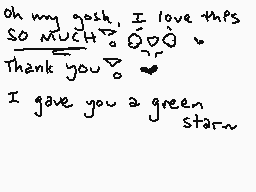 Oh my gosh, I love this
SO MUCH!
Thank you!
I gave you a green
star~